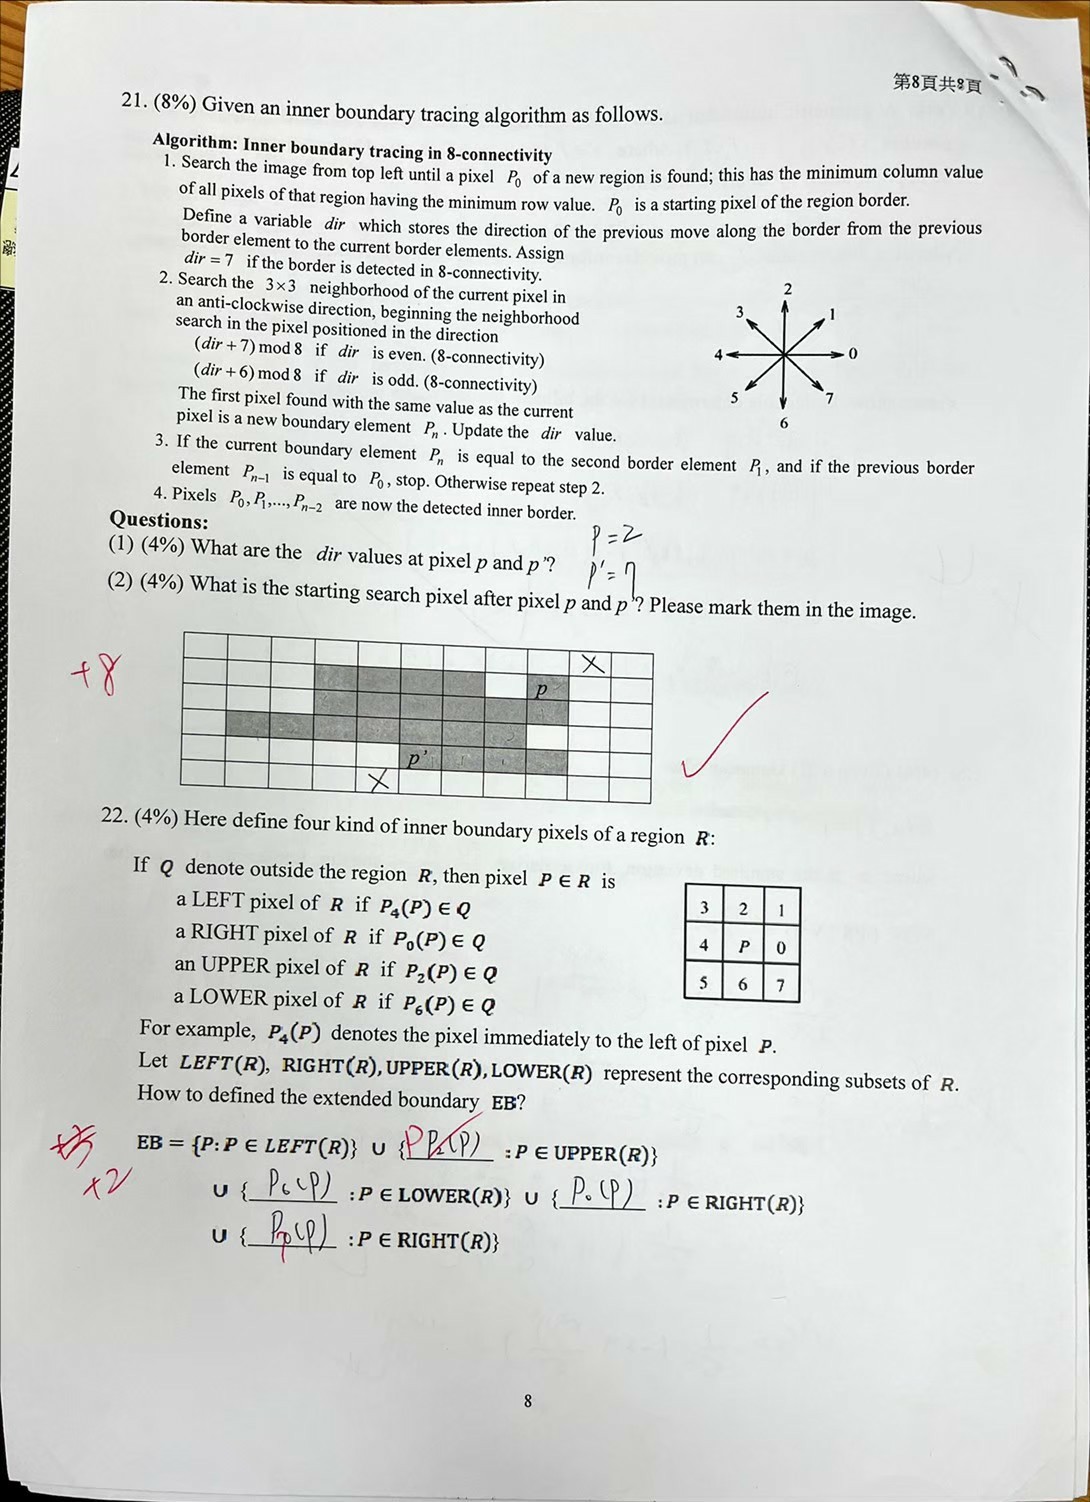 第8頁共8頁
21. (8%) Given an inner boundary tracing algorithm as follows.
Algorithm: Inner boundary tracing in 8-connectivity
1. Search the image from top left until a pixel P₀ of a new region is found; this has the minimum column value
of all pixels of that region having the minimum row value. P₀ is a starting pixel of the region border.
Define a variable dir which stores the direction of the previous move along the border from the previous
border element to the current border elements. Assign
dir = 7 if the border is detected in 8-connectivity.
2. Search the 3×3 neighborhood of the current pixel in
an anti-clockwise direction, beginning the neighborhood
search in the pixel positioned in the direction
(dir + 7) mod 8 if dir is even. (8-connectivity)
(dir + 6) mod 8 if dir is odd. (8-connectivity)
The first pixel found with the same value as the current
pixel is a new boundary element Pₙ. Update the dir value.
2
3 1
4 0
5 7
6
3. If the current boundary element Pₙ is equal to the second border element P₁, and if the previous border
element Pₙ₋₁ is equal to P₀, stop. Otherwise repeat step 2.
4. Pixels P₀, P₁,..., Pₙ₋₂ are now the detected inner border.
Questions:
(1) (4%) What are the dir values at pixel p and p'?
P=2
P'=7
(2) (4%) What is the starting search pixel after pixel p and p'? Please mark them in the image.
+8
X
p
p'
X
22. (4%) Here define four kind of inner boundary pixels of a region R:
If Q denote outside the region R, then pixel P ∈ R is
a LEFT pixel of R if P₄(P) ∈ Q
a RIGHT pixel of R if P₀(P) ∈ Q
an UPPER pixel of R if P₂(P) ∈ Q
a LOWER pixel of R if P₆(P) ∈ Q
3 2 1
4 P 0
5 6 7
For example, P₄(P) denotes the pixel immediately to the left of pixel P.
Let LEFT(R), RIGHT(R), UPPER(R), LOWER(R) represent the corresponding subsets of R.
How to defined the extended boundary EB?
EB = {P: P ∈ LEFT(R)} ∪ {P P₂(P) : P ∈ UPPER(R)}
+2
∪ {P₆(P) : P ∈ LOWER(R)} ∪ {P₀(P) : P ∈ RIGHT(R)}
∪ { : P ∈ RIGHT(R)}
8